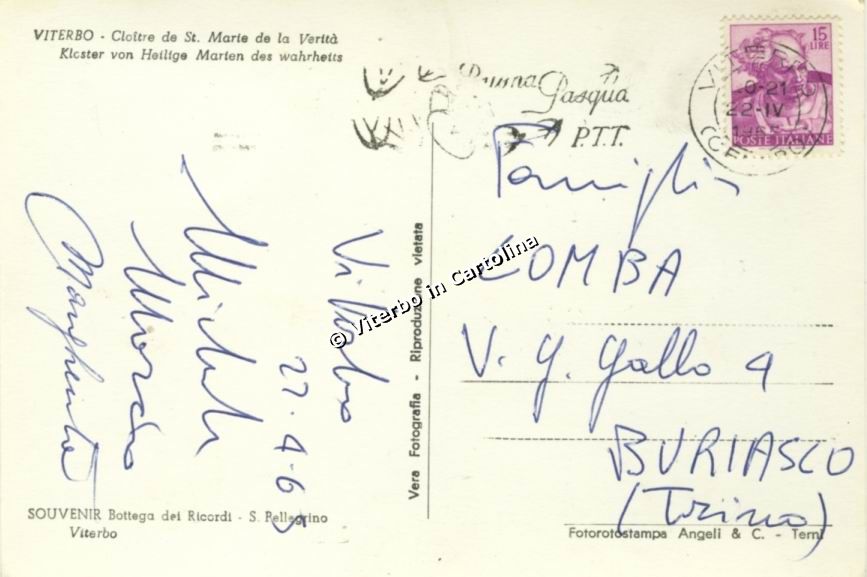 VITERBO - Cloître de St. Marie de la Verità
Kloster von Heilige Marien des wahrheits
15
LIRE
POSTE ITALIANE
Buona
Pasqua
P.T.T.
22-IV
Viterbo
22.4.65
Michele
Margherita
© Viterbo in Cartolina
Vera Fotografia - Riproduzione vietata
Famiglia
COMBA
V. G. Gallo 4
BURIASCO
(Torino)
SOUVENIR Bottega dei Ricordi - S. Pellegrino
Viterbo
Fotorotostampa Angeli & C. - Terni